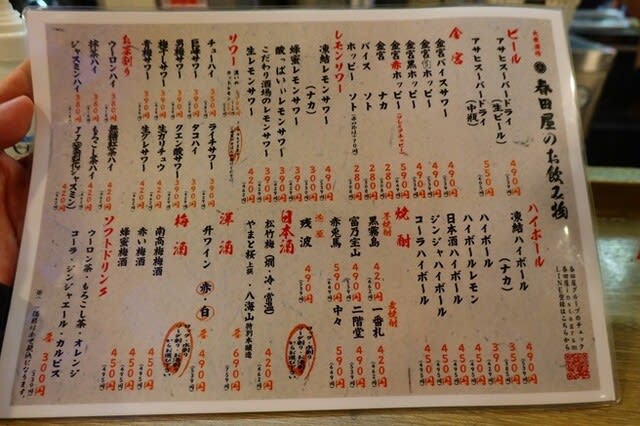 大衆酒場
春田屋のお飲み物
春田屋グループのチェック
春田屋Instagram
LINE登録はこちらから
ビール
アサヒスーパードライ
(生ビール)
490円
アサヒスーパードライ
(中瓶)
550円
金宮
金宮バイスサワー
490円
金宮白ホッピー
490円
金宮黒ホッピー
490円
金宮赤ホッピー
590円
金宮 ナカ
280円
バイス ソト
280円
ホッピー ソト
280円
レモンサワー
凍結レモンサワー
490円
(ナカ)
300円
蜂蜜レモンサワー
390円
酸っぱいレモンサワー
390円
こだわり酒場のレモンサワー
390円
生レモンサワー
420円
サワー
チューハイ
390円
巨峰サワー
390円
男梅サワー
390円
梅干しサワー
390円
青梅サワー
390円
ライチサワー
390円
タコハイ
390円
クエン酸サワー
390円
生ガリチュウ
420円
生グレサワー
420円
お茶割り
ウーロンハイ
380円
抹茶ハイ
420円
ジャスミンハイ
420円
無糖紅茶ハイ
380円
もろこし茶ハイ
420円
ハイボール
凍結ハイボール
490円
(ナカ)
350円
ハイボール
420円
ハイボールレモン
450円
日本酒ハイボール
450円
ジンジャハイボール
450円
コーラハイボール
450円
焼酎
芋焼酎
黒霧島
420円
富乃宝山
490円
赤兎馬
590円
麦焼酎
一番札
420円
二階堂
490円
中々
590円
残波
490円
日本酒
松竹梅(燗・冷・常温)
420円
やまと桜
八海山 特別本醸造
各690円
洋酒
升ワイン(赤・白)
各490円
梅酒
南高梅梅酒
450円
赤い梅酒
450円
蜂蜜梅酒
450円
ソフトドリンク
ウーロン茶・もろこし茶・オレンジ
コーラ・ジンジャエール・カルピス
各300円